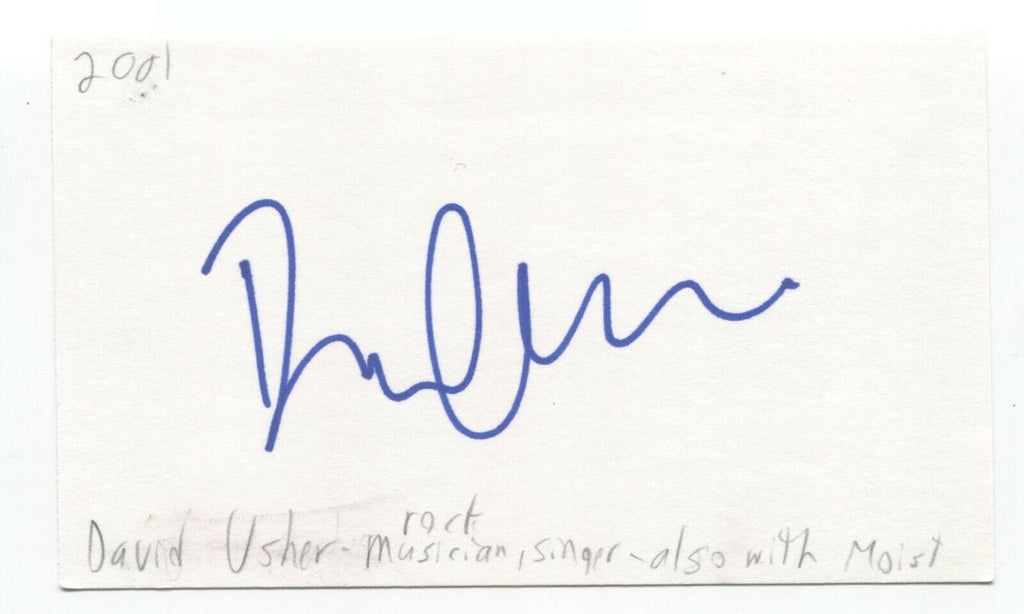 2001
rock
David Usher - musician, singer - also with Moist